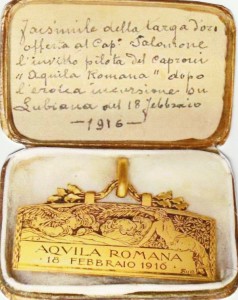 Facsimile della targa d'oro
offerta al Cap.º Salomone
l'invitto pilota del caproni
"Aquila Romana" dopo
l'eroica incursione su
Lubiana del 18 Febbraio
—1916—
AQVILA ROMANA
18 FEBBRAIO 1916